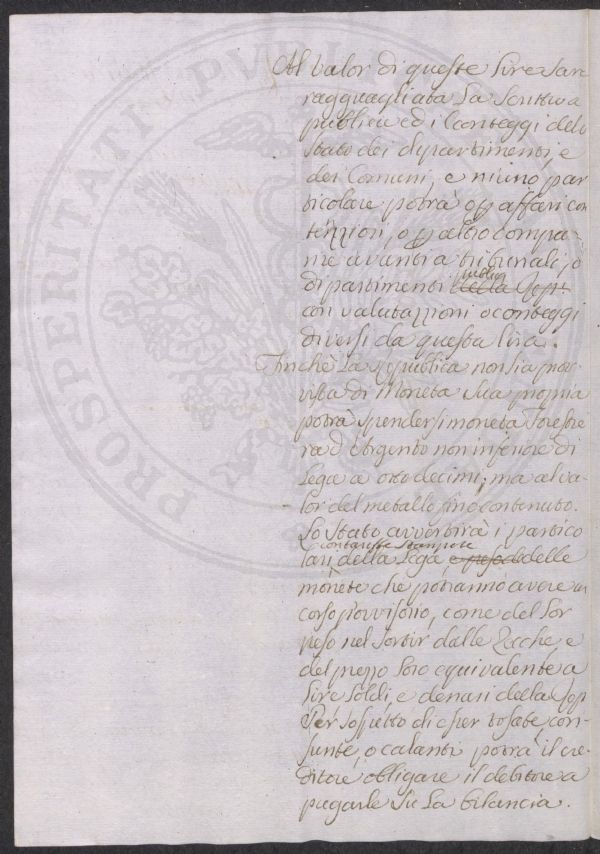 Al valor di queste Lire sarà
ragguagliata La Scrittura
publica ed i Conteggi dello
Stato dei dipartimenti, e
dei Comuni, e niuno par
ticolare potrà o p affari con
tenziosi, o p altro compa-
rire avanti a tribunali, o
publici
dipartimenti della Rep.
con valutazzioni o conteggi
diversi da questa lira.
Finchè La Republica non sia prov-
vista di Moneta sua propria
potrà spendersi moneta Forestie
ra d'Argento non inferiore di
Lega a otto decimi; ma al va-
lor del metallo fino contenuto.
Lo Stato avvertirà i partico
con tariffe stampate
lari della Lega, e peso delle
monete che potranno avere in
corso provvisorio, come del Lor
peso nel sortir dalle Zecche, e
del prezzo Loro equivalente a
Lire Soldi, e denari della Rep.
Per sospetto di esser tosate, con-
sunte, o calanti potrà il cre-
ditore obligare il debitore a
pagarle su La bilancia.
PROSPERITATI PVBLIC